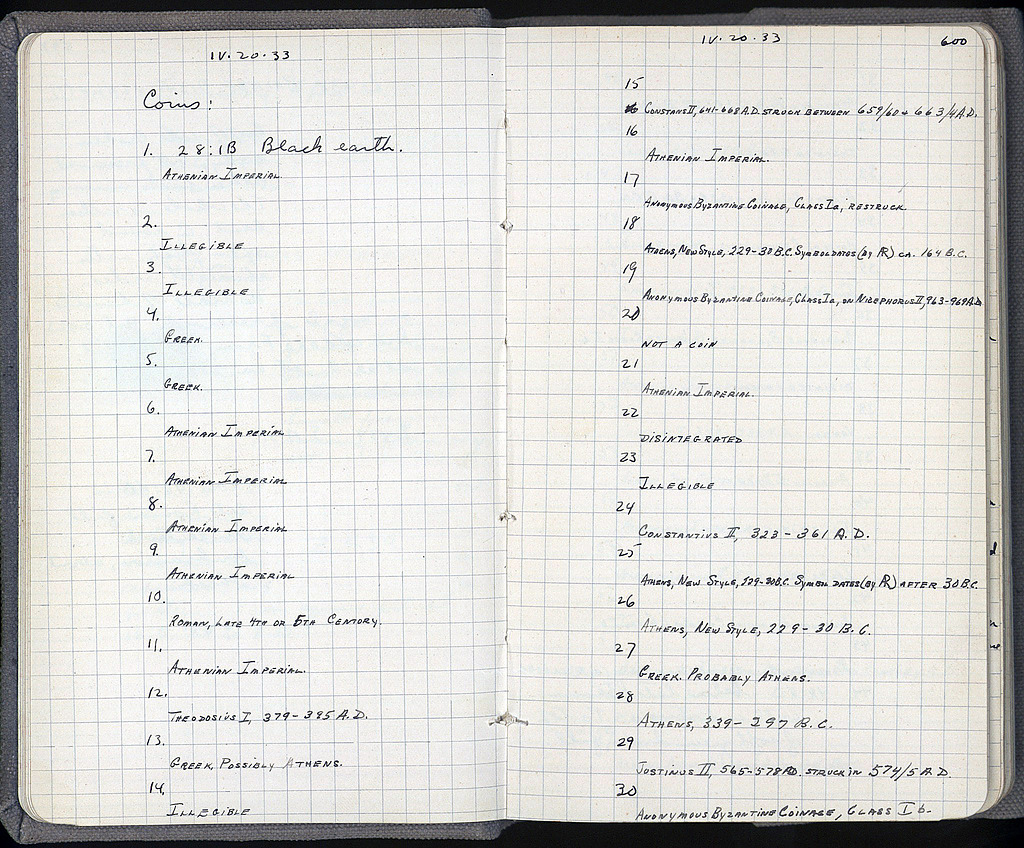 IV. 20. 33
Coins:
1. 28:1B Black earth.
ATHENIAN IMPERIAL.
2.
ILLEGIBLE
3.
ILLEGIBLE
4.
GREEK.
5.
GREEK.
6.
ATHENIAN IMPERIAL
7.
ATHENIAN IMPERIAL
8.
ATHENIAN IMPERIAL
9.
ATHENIAN IMPERIAL
10.
ROMAN, LATE 4TH OR 5TH CENTURY.
11.
ATHENIAN IMPERIAL.
12.
THEODOSIUS I, 379-395 A.D.
13.
GREEK, POSSIBLY ATHENS.
14.
ILLEGIBLE
IV. 20. 33
600
15
CONSTANS II, 641-668 A.D. STRUCK BETWEEN 659/60 + 663/4 A.D.
16
ATHENIAN IMPERIAL.
17
ANONYMOUS BYZANTINE COINAGE, CLASS Ia, RESTRUCK
18
ATHENS, NEW STYLE, 229-30 B.C. SYMBOL DATES (by AR) CA. 164 B.C.
19
ANONYMOUS BYZANTINE COINAGE, CLASS Ia, ON NICEPHORUS II, 963-969 A.D.
20
NOT A COIN
21
ATHENIAN IMPERIAL.
22
DISINTEGRATED
23
ILLEGIBLE
24
CONSTANTIUS II, 323-361 A.D.
25
ATHENS, NEW STYLE, 229-30 B.C. SYMBOL DATES (by AR) AFTER 30 B.C.
26
ATHENS, NEW STYLE, 229-30 B.C.
27
GREEK. PROBABLY ATHENS.
28
ATHENS, 339-297 B.C.
29
JUSTINUS II, 565-578 AD. STRUCK IN 574/5 A.D.
30
ANONYMOUS BYZANTINE COINAGE, CLASS Ib-